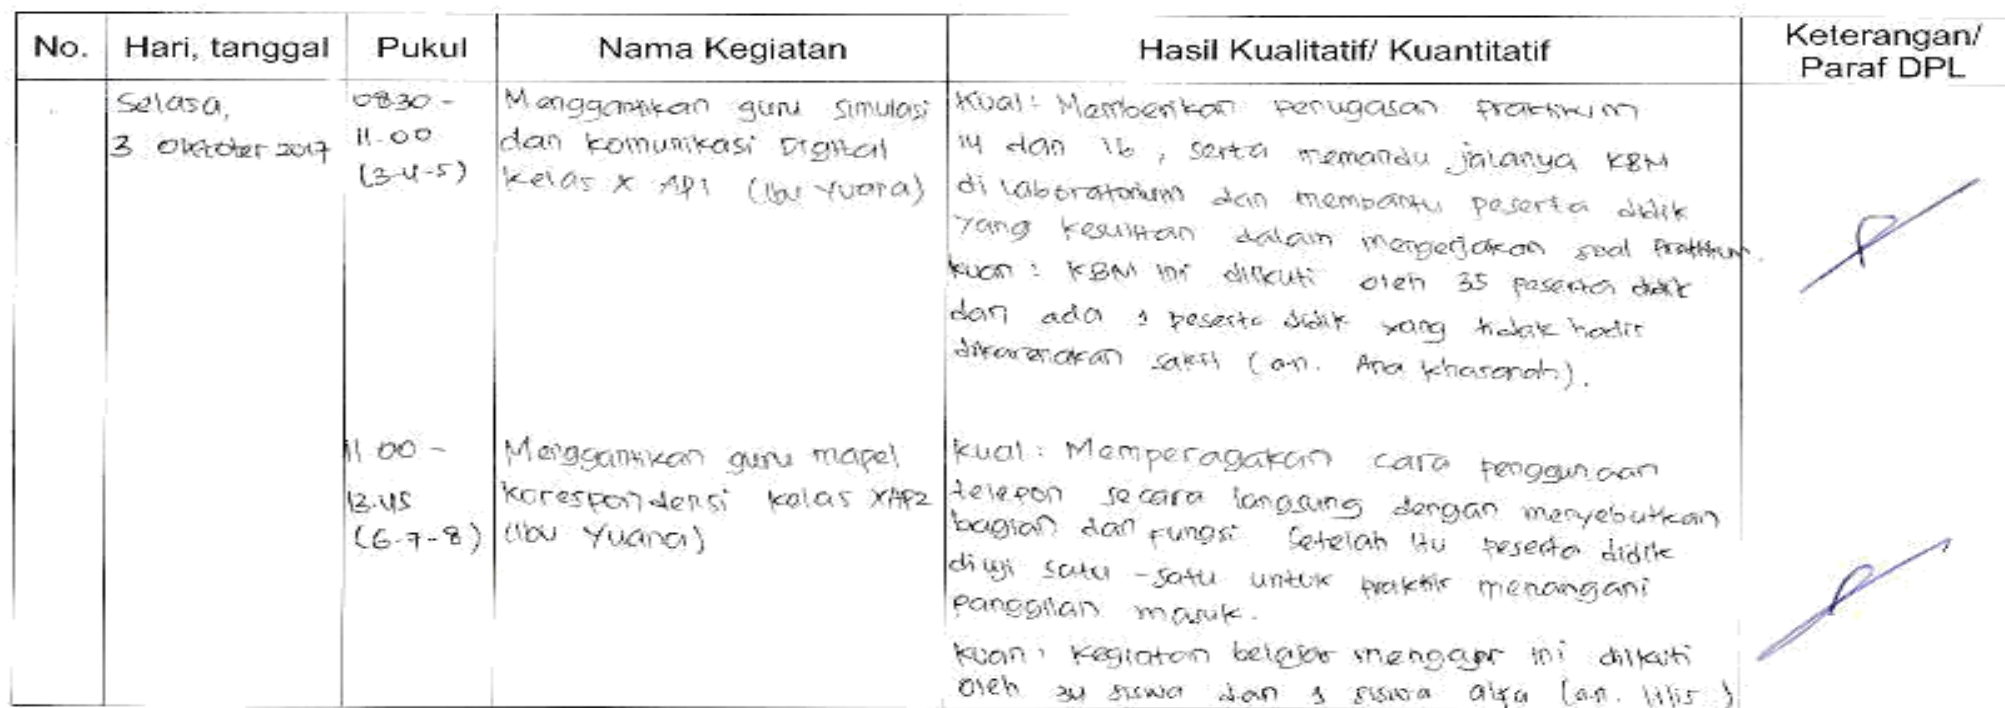 No. Hari, tanggal Pukul Nama Kegiatan Hasil Kualitatif/ Kuantitatif Keterangan/
Paraf DPL
Selasa,
3 Oktober 2017
08.30 -
11.00
(3-4-5)
Menggantikan guru simulasi
dan komunikasi Digital
kelas X AP1 (Ibu Yuana)
Kual: Memberikan penugasan praktikum
14 dan 16, serta memandu jalanya KBM
di laboratorium dan membantu peserta didik
yang kesulitan dalam mengerjakan soal Praktikum.
kuan : KBM ini diikuti oleh 35 peserta didik
dan ada 1 peserta didik yang tidak hadir
dikarenakan sakit (a.n. Ana Khasanah).
11.00 -
13.45
(6-7-8)
Menggantikan guru mapel
korespondensi kelas XAP2
(Ibu Yuana)
kual : Memperagakan cara penggunaan
telepon secara langsung dengan menyebutkan
bagian dan fungsi Setelah itu peserta didik
diuji satu-satu untuk praktik menangani
panggilan masuk.
kuan : Kegiatan belajar mengajar ini diikuti
oleh 34 siswa dan 1 siswa alfa (an. lilis)